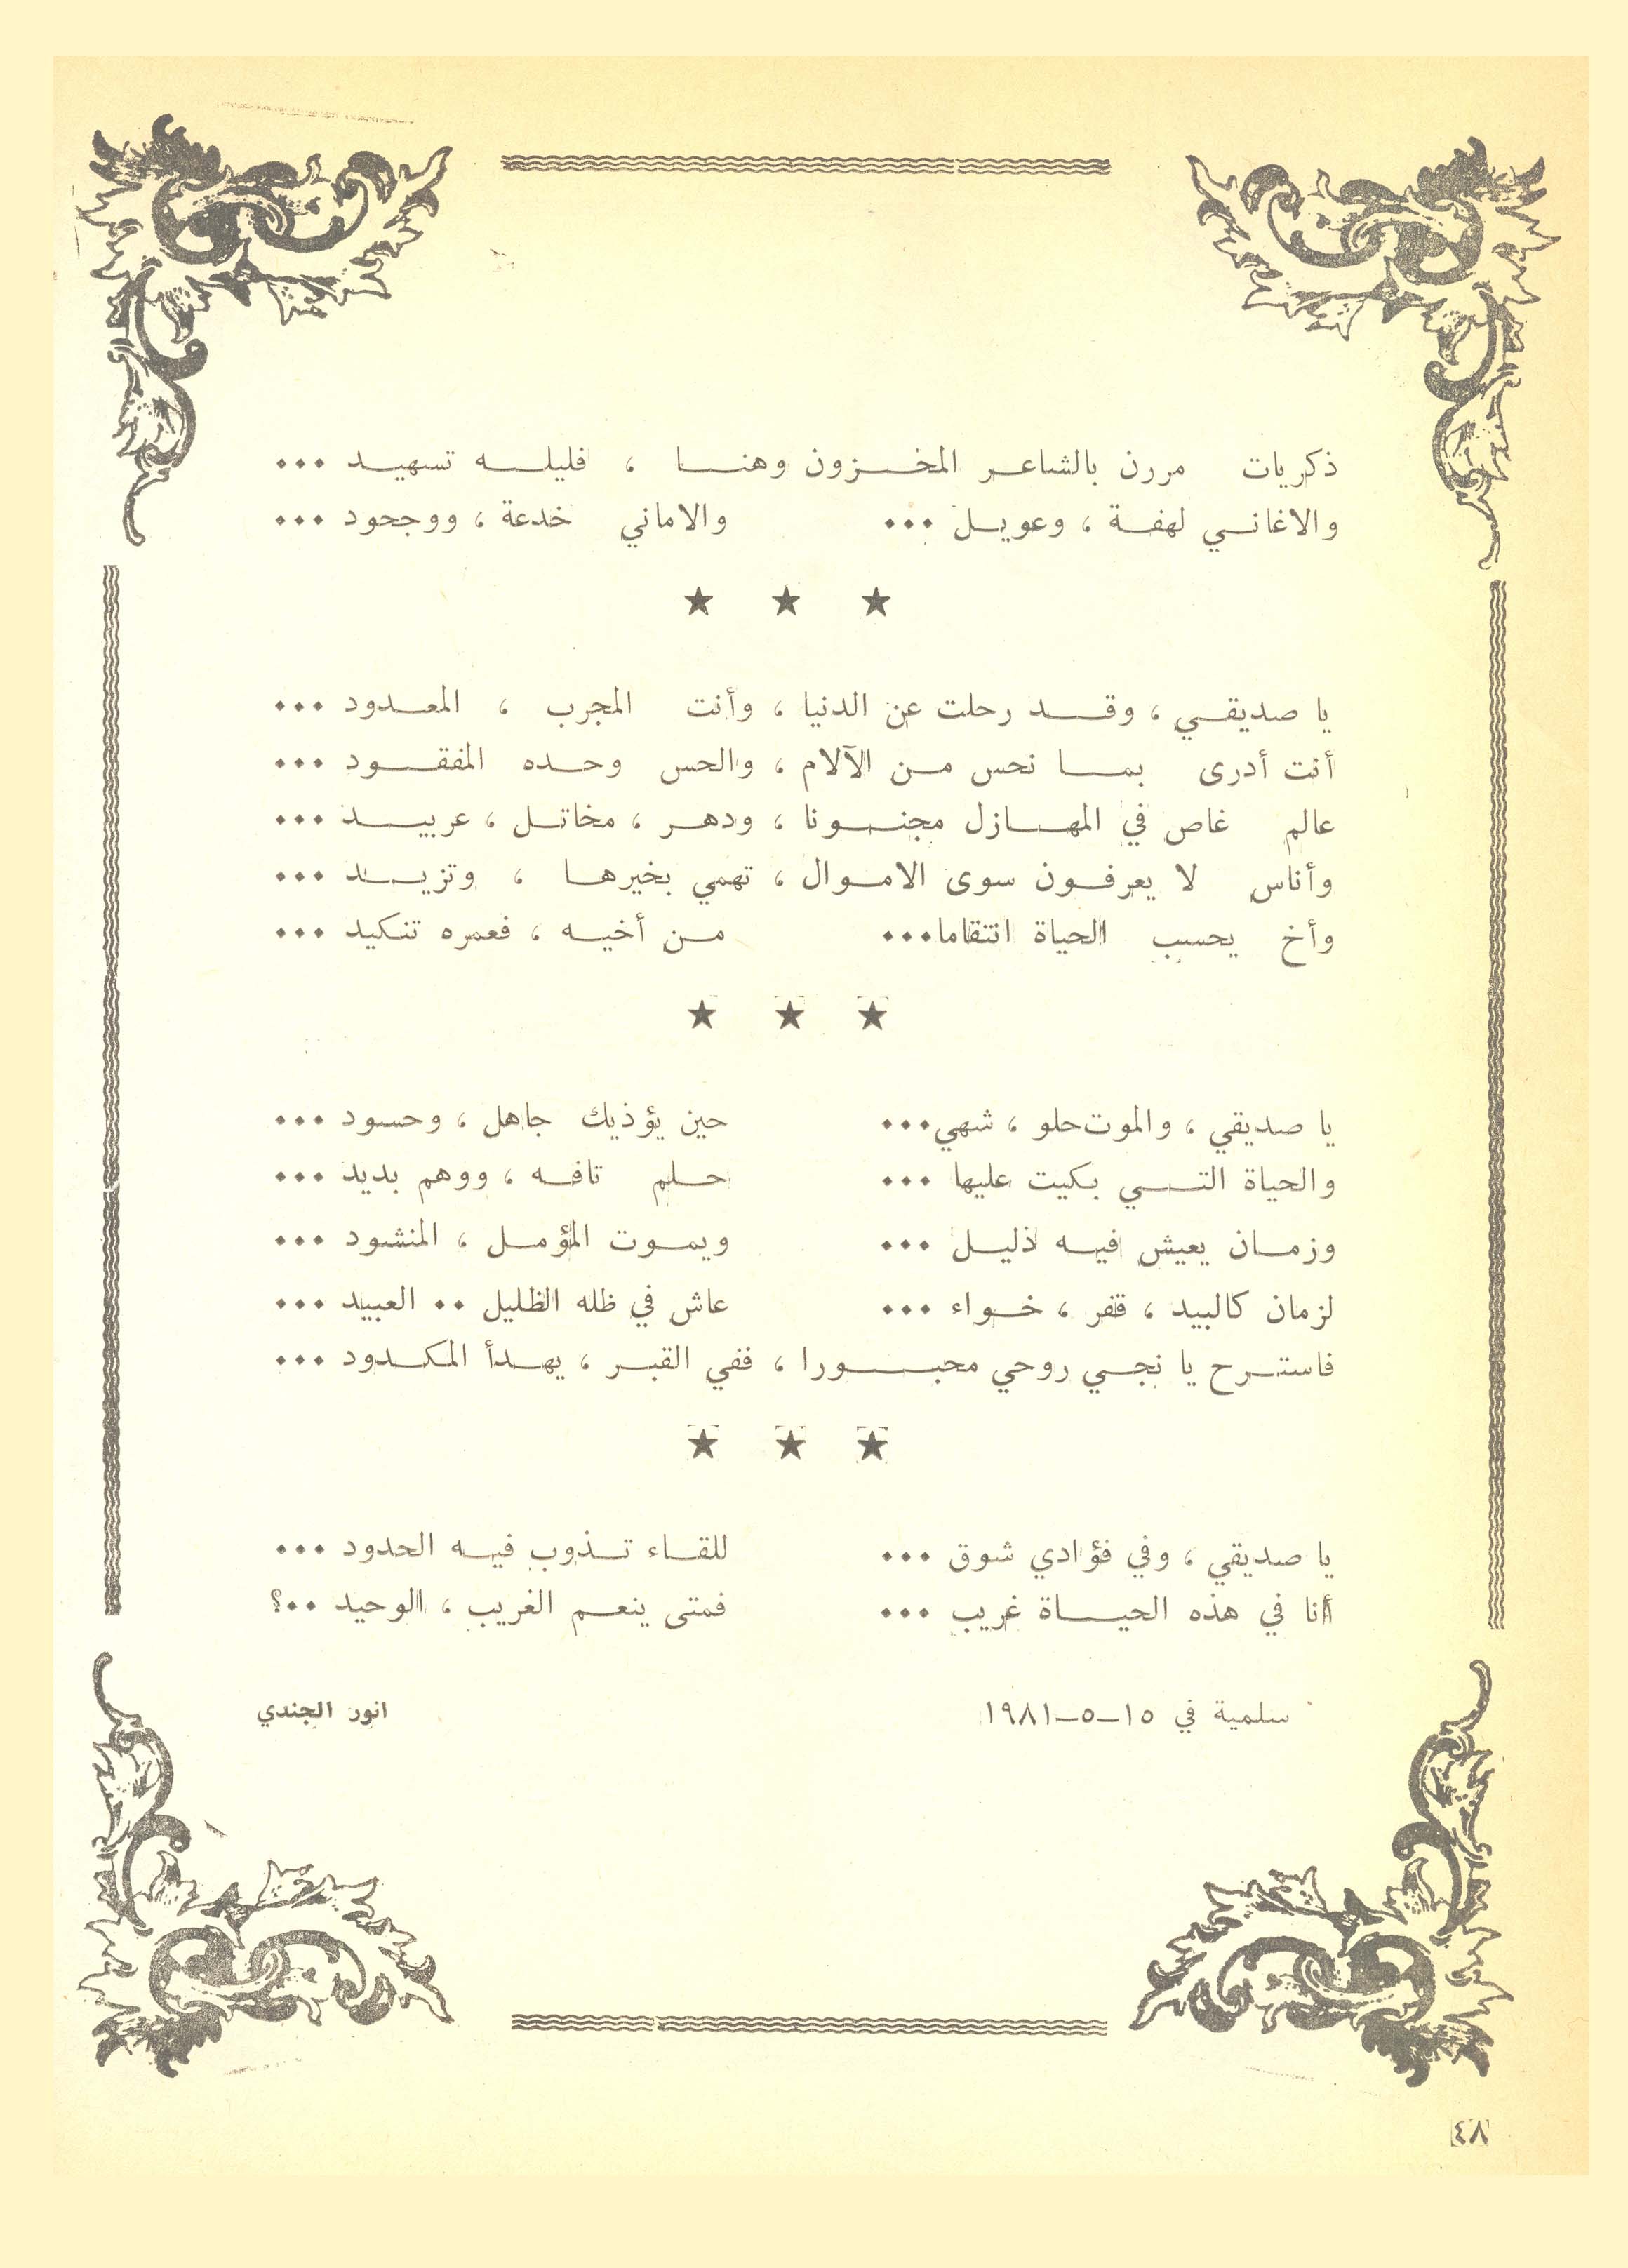 ذكريات مررن بالشاعر المخزون وهنا ، فليله تسهيد ...
والاغاني لهفة ، وعويل ... والاماني خدعة ، ووجحود ...
★ ★ ★
يا صديقي ، وقد رحلت عن الدنيا ، وأنت المجرب ، المعدود ...
أنت أدرى بما نحس من الآلام ، والحس وحده المفقود ...
عالم غاص في المهازل مجنونا ، ودهر ، مخاتل ، عربيد ...
وأناس لا يعرفون سوى الاموال ، تهمي بخيرها ، وتزيد ...
وأخ يحسب الحياة انتقاما... من أخيه ، فعمره تنكيد ...
★ ★ ★
يا صديقي ، والموت حلو ، شهي... حين يؤذيك جاهل ، وحسود ...
والحياة التي بكيت عليها ... حلم تافه ، ووهم بديد ...
وزمان يعيش فيه ذليل ... ويموت المؤمل ، المنشود ...
لزمان كالبيد ، قفر ، خواء ... عاش في ظله الظليل .. العبيد ...
فاسترح يا نجي روحي محبورا ، ففي القبر ، يهدأ المكدود ...
★ ★ ★
يا صديقي ، وفي فؤادي شوق ... للقاء تذوب فيه الحدود ...
أنا في هذه الحياة غريب ... فمتى ينعم الغريب ، الوحيد ..؟
سلمية في ١٥-٥-١٩٨١ انور الجندي
٤٨